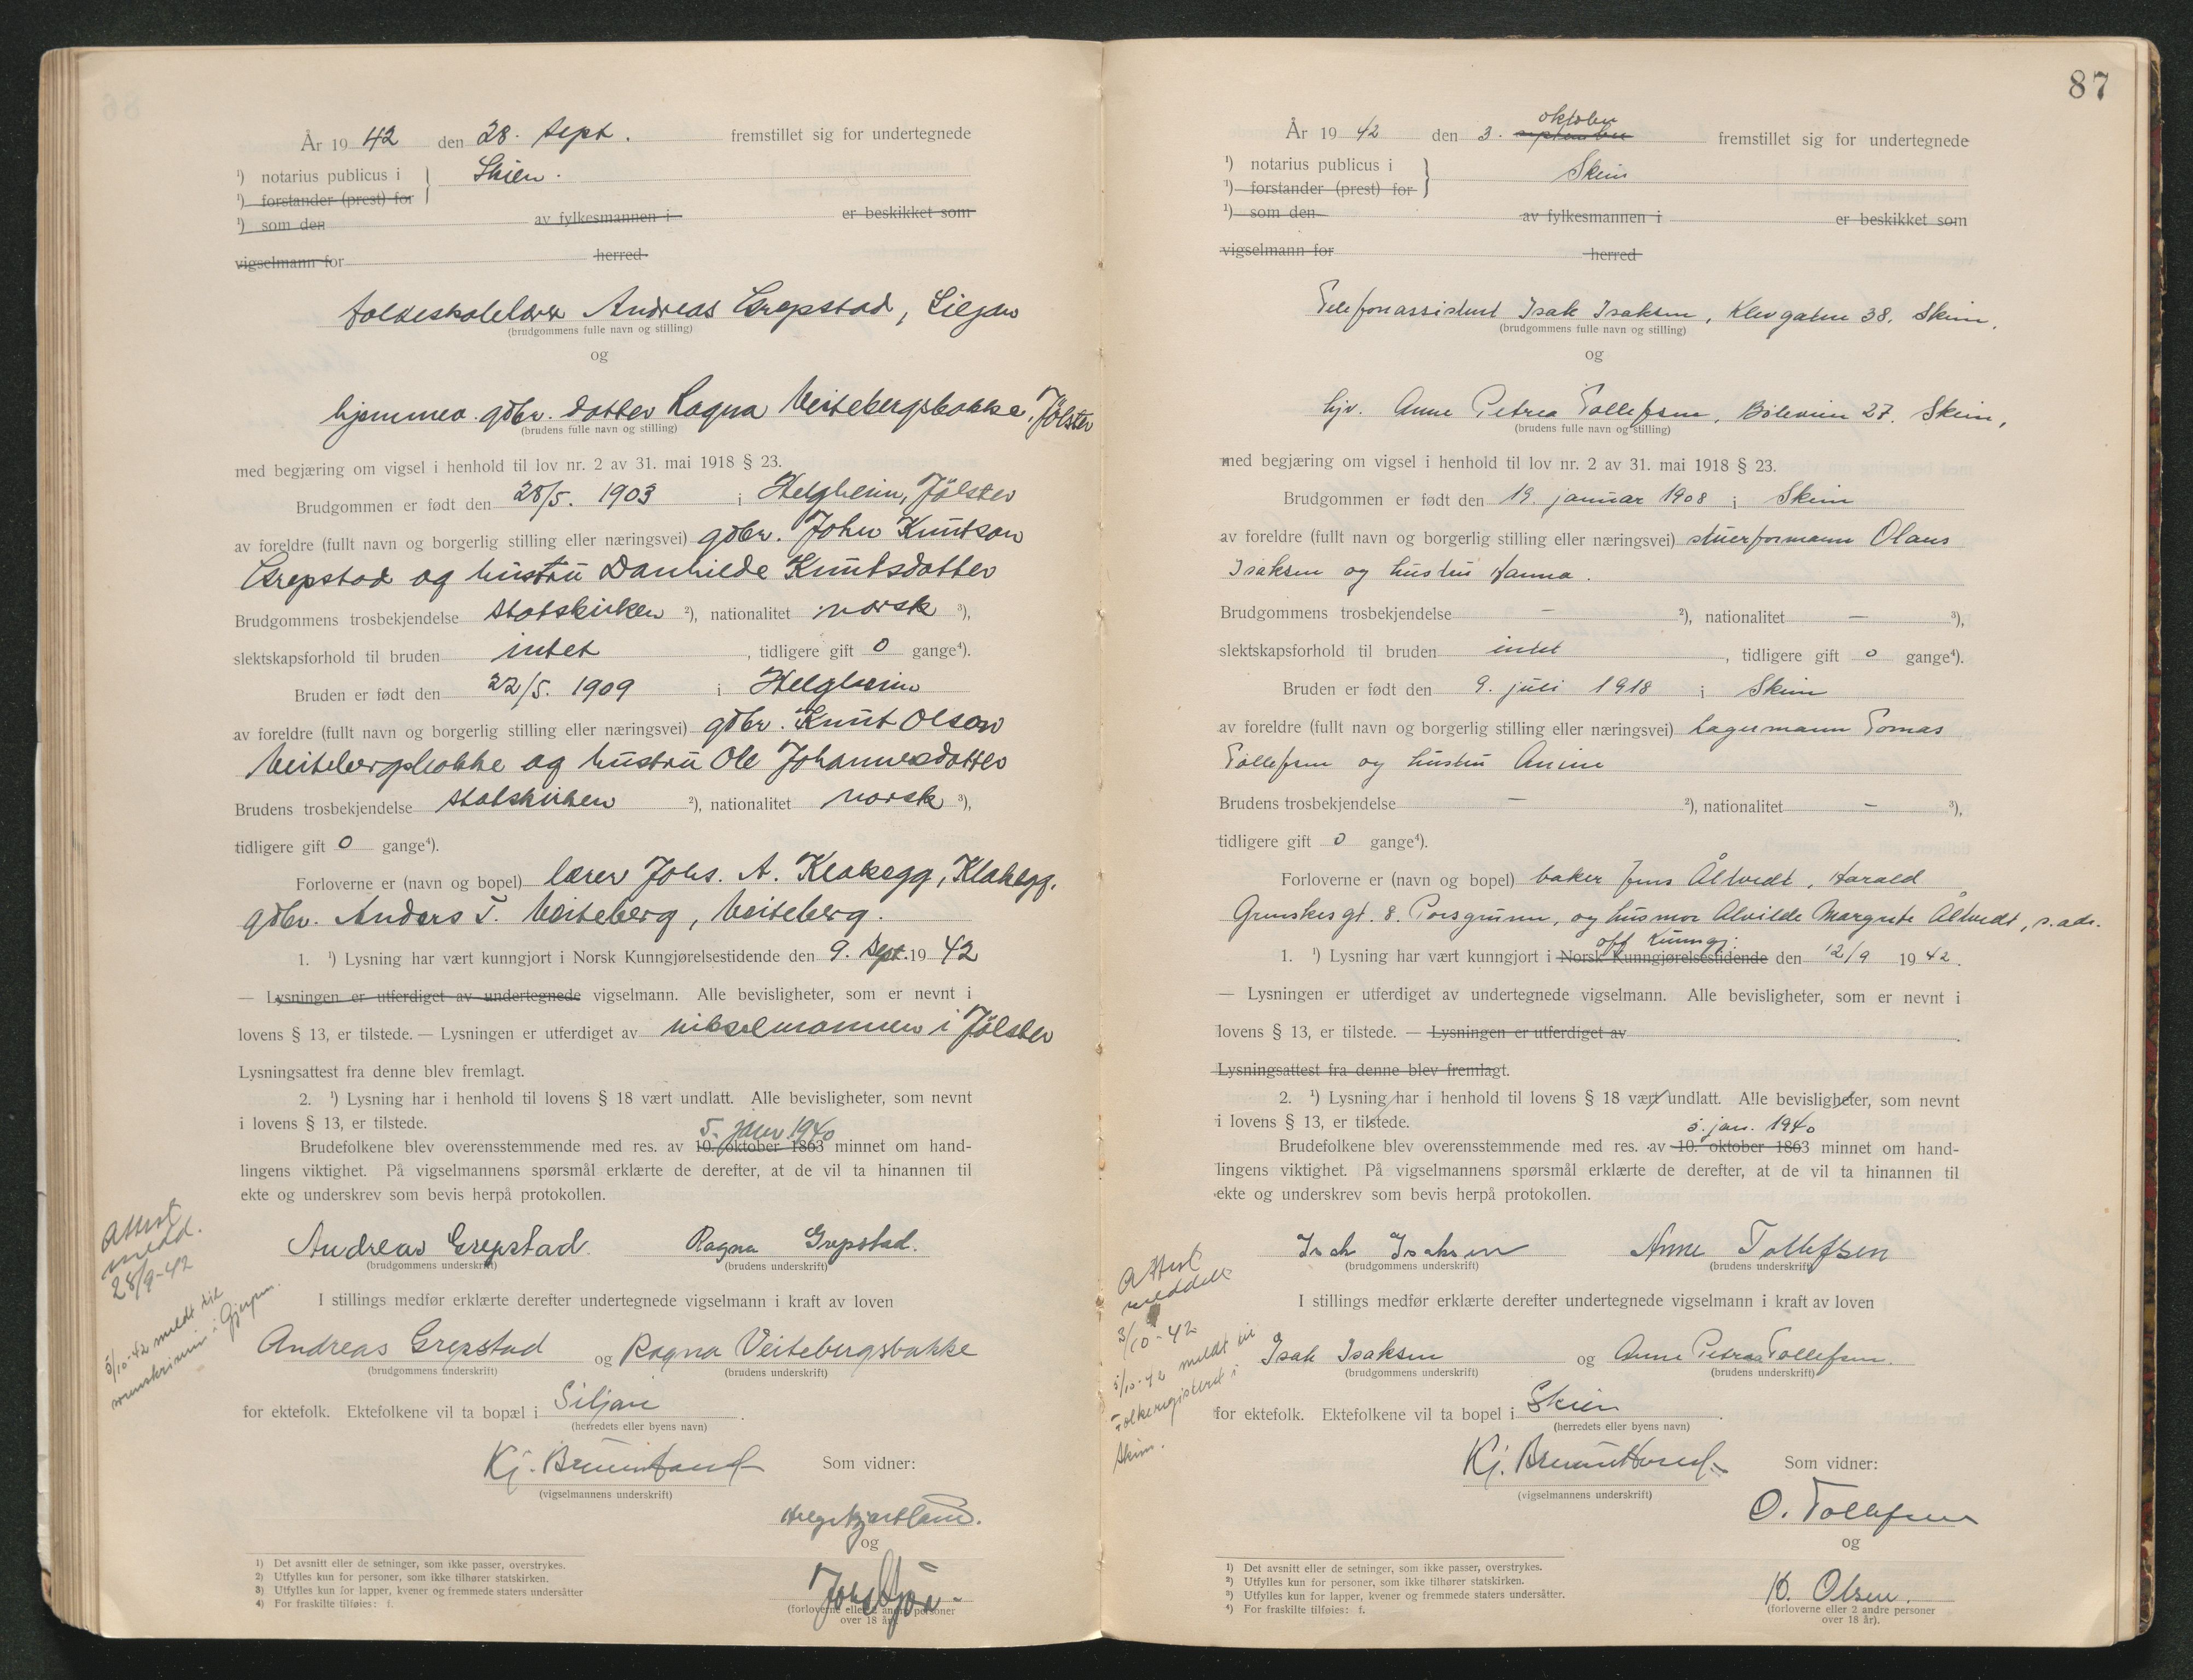 År 19 42 den 28. sept. fremstillet sig for undertegnede
¹) notarius publicus i } Skien.
¹) forstander (prest) for
¹) som den av fylkesmannen i er beskikket som
vigselmann for herred
folkeskolelærer Andreas Grepstad, Siljan
(brudgommens fulle navn og stilling)
og
hjemmev. gdbr. datter Ragna Veitebergsbakke, Jølster
(brudens fulle navn og stilling)
med begjæring om vigsel i henhold til lov nr. 2 av 31. mai 1918 § 23.
Brudgommen er født den 28/5. 1903 i Helgheim, Jølster
av foreldre (fullt navn og borgerlig stilling eller næringsvei) gdbr. John Knutson
Grepstad og hustru Danhilde Knutsdotter
Brudgommens trosbekjendelse statskirken ²), nationalitet norsk ³),
slektskapsforhold til bruden intet, tidligere gift 0 gange⁴).
Bruden er født den 22/5. 1909 i Helgheim
av foreldre (fullt navn og borgerlig stilling eller næringsvei) gdbr. Knut Olson
Veitebergsbakke og hustru Ole Johannesdotter
Brudens trosbekjendelse statskirken ²), nationalitet norsk ³),
tidligere gift 0 gange⁴).
Forloverne er (navn og bopel) lærer Johs. A. Klakegg, Klakegg.
gdbr. Anders T. Veiteberg, Veiteberg.
1. ¹) Lysning har vært kunngjort i Norsk Kunngjørelsestidende den 9. sept. 19 42
— Lysningen er utferdiget av undertegnede vigselmann. Alle bevisligheter, som er nevnt i
lovens § 13, er tilstede. — Lysningen er utferdiget av vikselmannen i Jølster
Lysningsattest fra denne blev fremlagt.
2. ¹) Lysning har i henhold til lovens § 18 vært undlatt. Alle bevisligheter, som nevnt
i lovens § 13, er tilstede.
5. janu. 1940
Brudefolkene blev overensstemmende med res. av 10. oktober 1863 minnet om hand-
lingens viktighet. På vigselmannens spørsmål erklærte de derefter, at de vil ta hinannen til
ekte og underskrev som bevis herpå protokollen.
Attest
medd.
28/9-42
5/10-42 meldt til
sorenskriveren i Gjerpen.
Andreas Grepstad. Ragna Grepstad.
(brudgommens underskrift) (brudens underskrift)
I stillings medfør erklærte derefter undertegnede vigselmann i kraft av loven
Andreas Grepstad og Ragna Veitebergsbakke
(brudgommens underskrift) (brudens underskrift)
for ektefolk. Ektefolkene vil ta bopæl i Siljan.
(herredets eller byens navn)
Kj. Som vidner:
(vigselmannens underskrift)
og
(forloverne eller 2 andre personer
over 18 år).
1) Det avsnitt eller de setninger, som ikke passer, overstrykes.
2) Utfylles kun for personer, som ikke tilhører statskirken.
3) Utfylles kun for lapper, kvener og fremmede staters undersåtter
4) For fraskilte tilføies: f.
87
oktober
År 19 42 den 3. september fremstillet sig for undertegnede
¹) notarius publicus i } Skien
¹) forstander (prest) for
¹) som den av fylkesmannen i er beskikket som
vigselmann for herred
Telefonassistent Isak Isaksen, Klevgaten 38. Skien.
(brudgommens fulle navn og stilling)
og
hjv. Anne Petrea Tollefsen, Bøleveien 27. Skien,
(brudens fulle navn og stilling)
med begjæring om vigsel i henhold til lov nr. 2 av 31. mai 1918 § 23.
Brudgommen er født den 19. januar 1908 i Skien
av foreldre (fullt navn og borgerlig stilling eller næringsvei) stuerformann Olaus
Isaksen og hustru Hanna.
Brudgommens trosbekjendelse — ²), nationalitet — ³),
slektskapsforhold til bruden intet, tidligere gift 0 gange⁴).
Bruden er født den 9. juli 1918 i Skien
av foreldre (fullt navn og borgerlig stilling eller næringsvei) lagermann Tomas
Tollefsen og hustru Anine
Brudens trosbekjendelse — ²), nationalitet — ³),
tidligere gift 0 gange⁴).
Forloverne er (navn og bopel) baker Jens Åltvedt, Harald
Grenskes gt. 8. Porsgrunn, og husmor Alvilde Margrete Åltvedt, s. adr.
off. Kunngj.
1. ¹) Lysning har vært kunngjort i Norsk Kunngjørelsestidende den 12/9 19 42.
— Lysningen er utferdiget av undertegnede vigselmann. Alle bevisligheter, som er nevnt i
lovens § 13, er tilstede. — Lysningen er utferdiget av
Lysningsattest fra denne blev fremlagt.
2. ¹) Lysning har i henhold til lovens § 18 vært undlatt. Alle bevisligheter, som nevnt
i lovens § 13, er tilstede.
5. jan. 1940
Brudefolkene blev overensstemmende med res. av 10. oktober 1863 minnet om hand-
lingens viktighet. På vigselmannens spørsmål erklærte de derefter, at de vil ta hinannen til
ekte og underskrev som bevis herpå protokollen.
Attest
meddelt
3/10-42
5/10-42 meldt til
Folkeregisteret i
Skien.
Isak Isaksen Anne Tollefsen
(brudgommens underskrift) (brudens underskrift)
I stillings medfør erklærte derefter undertegnede vigselmann i kraft av loven
Isak Isaksen og Anne Petrea Tollefsen.
(brudgommens underskrift) (brudens underskrift)
for ektefolk. Ektefolkene vil ta bopel i Skien.
(herredets eller byens navn)
Kj. Som vidner:
(vigselmannens underskrift)
O. Tollefsen
og
K. Olsen.
(forloverne eller 2 andre personer
over 18 år).
¹) Det avsnitt eller de setninger, som ikke passer, overstrykes.
²) Utfylles kun for personer, som ikke tilhører statskirken.
³) Utfylles kun for lapper, kvener og fremmede staters undersåtter.
⁴) For fraskilte tilføies: f.